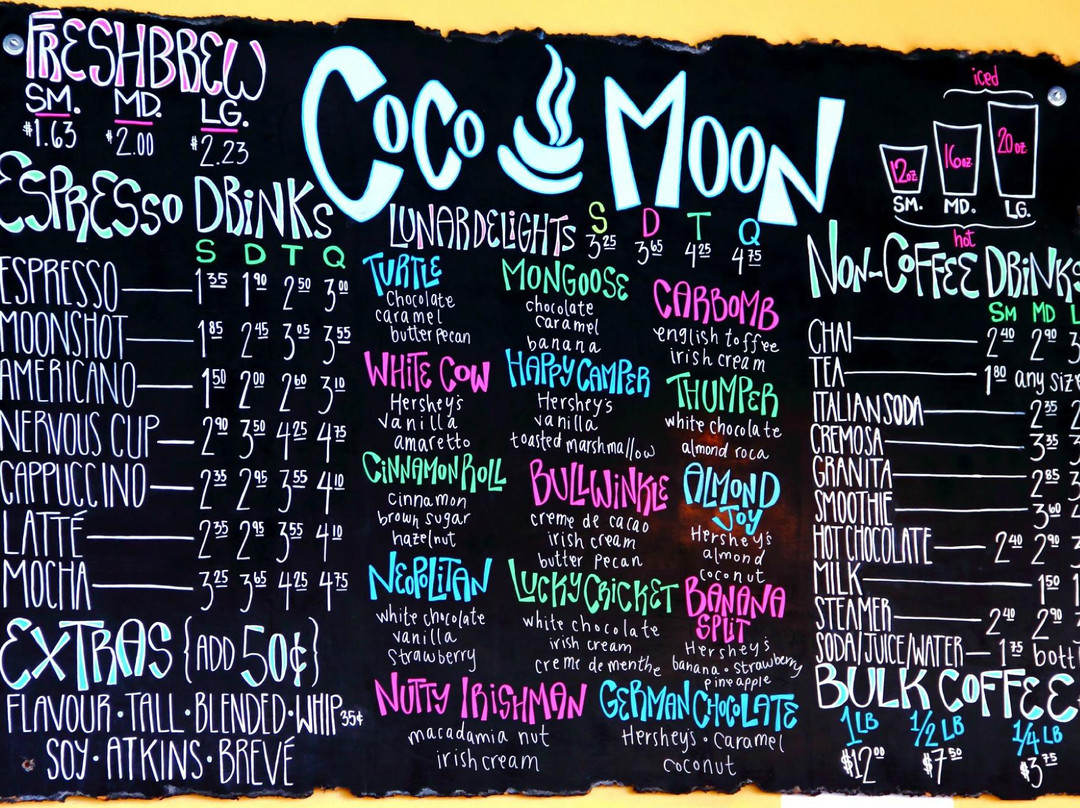 FRESHBREW
SM. MD. LG.
$1.63 $2.00 $2.23
ESPRESSO DRINKS
S D T Q
ESPRESSO 1 35 1 90 2 50 3 00
MOONSHOT 1 85 2 45 3 05 3 55
AMERICANO 1 50 2 00 2 60 3 10
NERVOUS CUP 2 90 3 50 4 25 4 75
CAPPUCCINO 2 35 2 95 3 55 4 10
LATTÉ 2 35 2 95 3 55 4 10
MOCHA 3 25 3 65 4 25 4 75
EXTRAS {ADD 50¢}
FLAVOUR · TALL · BLENDED · WHIP 35¢
SOY · ATKINS · BREVÉ
COCO MOON
LUNAR DELIGHTS S D T Q
3 25 3 65 4 25 4 75
TURTLE
chocolate
caramel
butter pecan
MONGOOSE
chocolate
caramel
banana
CARBOMB
english toffee
irish cream
WHITE COW
Hershey's
vanilla
amaretto
HAPPY CAMPER
Hershey's
vanilla
toasted marshmallow
THUMPER
white chocolate
almond roca
CINNAMON ROLL
cinnamon
brown sugar
hazelnut
BULLWINKLE
creme de cacao
irish cream
butter pecan
ALMOND
JOY
Hershey's
almond
coconut
NEOPOLITAN
white chocolate
vanilla
strawberry
LUCKY CRICKET
white chocolate
irish cream
creme de menthe
BANANA
SPLIT
Hershey's
banana · strawberry
pineapple
NUTTY IRISHMAN
macadamia nut
irish cream
GERMAN CHOCOLATE
Hershey's · caramel
coconut
iced
12oz 16oz 20oz
SM. MD. LG.
hot
NON-COFFEE DRINKS
SM MD L
CHAI 2 40 2 90 3
TEA 1 80 any size
ITALIAN SODA 2 35 2
CREMOSA 3 35 3
GRANITA 2 85 3
SMOOTHIE 3 60 4
HOT CHOCOLATE 2 40 2 90 3
MILK 1 50 1
STEAMER 2 40 2 90
SODA/JUICE/WATER 1 75 bott
BULK COFFEE
1 LB 1/2 LB 1/4 LB
$12 00 $7 50 $3 75